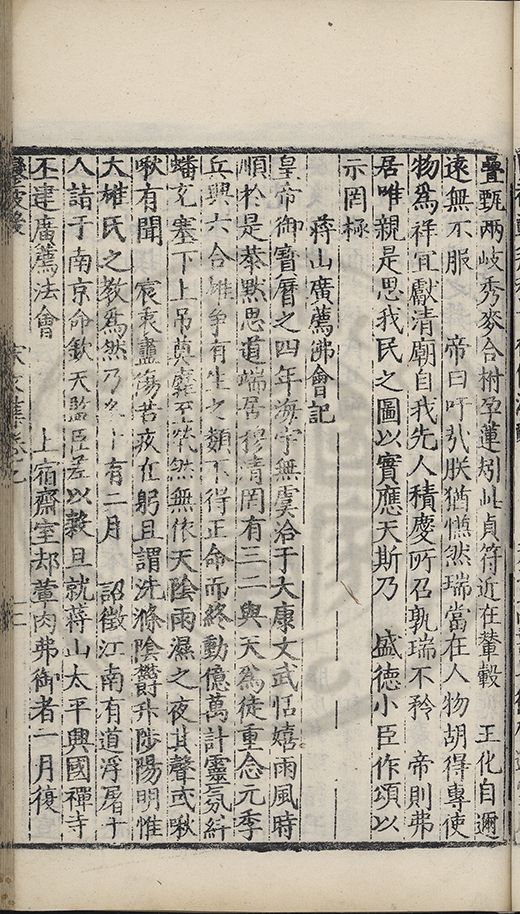 疊甄兩岐秀麥合柎孕蓮矧此貞符近在輦轂 王化自邇
遠無不服 帝曰吁弘朕猶憮然瑞當在人物胡得專使
物為祥宜獻清廟自我先人積慶所召孰瑞不矜 帝則弗
居唯親是思我民之圖以實應天斯乃 盛德小臣作頌以
示罔極
蔣山廣薦沸會記
皇帝御寶曆之四年海宇無虞洽于大康文武恬嬉雨風時
順於是恭默思道端居穆清罔有三二與天為徒重念元季
兵興六合雄爭有生之類不得正命而終動億萬計靈氛糾
蟠充塞下上弔奠靡至煢然無依天陰雨濕之夜其聲或啾
啾有聞 宸衷衋傷若疚在躬且謂洗滌陰鬱升陟陽明惟
大雄氏之教為然乃冬十有二月 詔徵江南有道浮屠十
人詣于南京命欽天監臣差以穀旦就蔣山太平興國禪寺
丕建廣薦法會 上宿齋室却葷肉弗御者一月復
鑾坡後
三